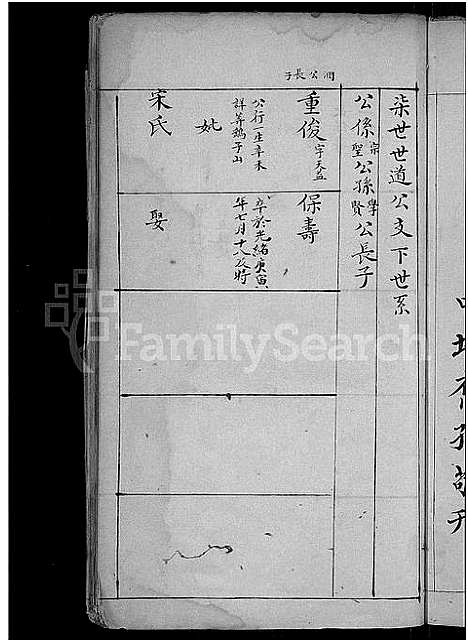 柒世世道公支下世系
公係宗聖公孫學賢公長子
潤公長子
重俊
字天益
公行一生辛未
詳葬鵝子山
妣
宋氏
保壽
卒於光緒庚寅
年七月十八辰時
娶
FamilySearch